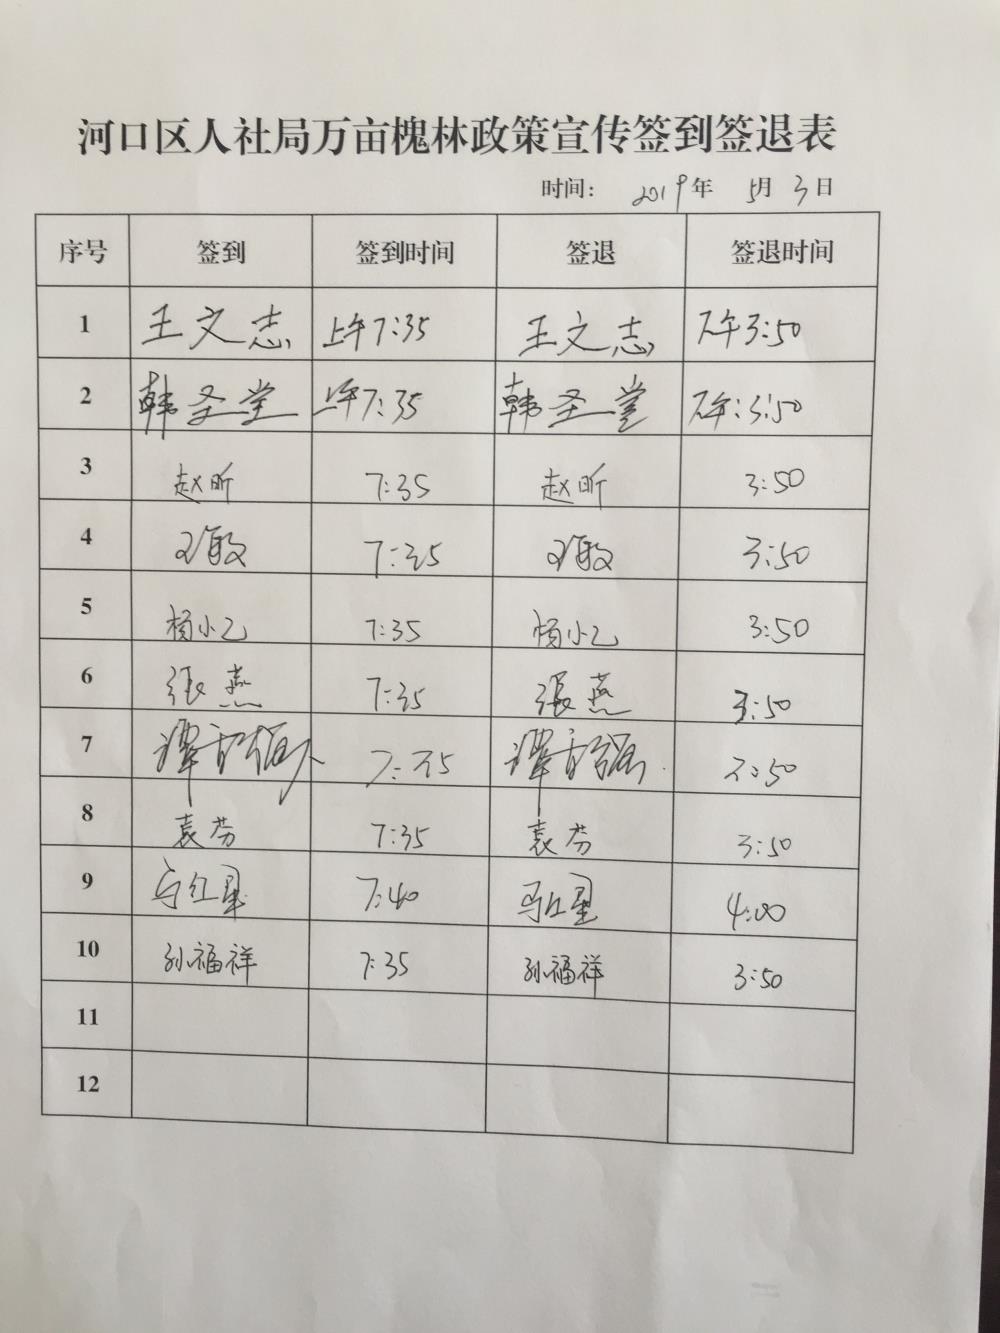 河口区人社局万亩槐林政策宣传签到签退表
时间: 2019年 5月 3日
序号 签到 签到时间 签退 签退时间
1 王文志 上午7:35 王文志 下午3:50
2 韩圣堂 上午7:35 韩圣堂 下午:3:50
3 赵昕 7:35 赵昕 3:50
4 7:35 3:50
5 杨小乙 7:35 杨小乙 3:50
6 张燕 7:35 張燕 3:50
7 7:35 3:50
8 袁芬 7:35 袁芬 3:50
9 马红星 7:40 马红星 4:00
10 孙福祥 7:35 孙福祥 3:50
11
12